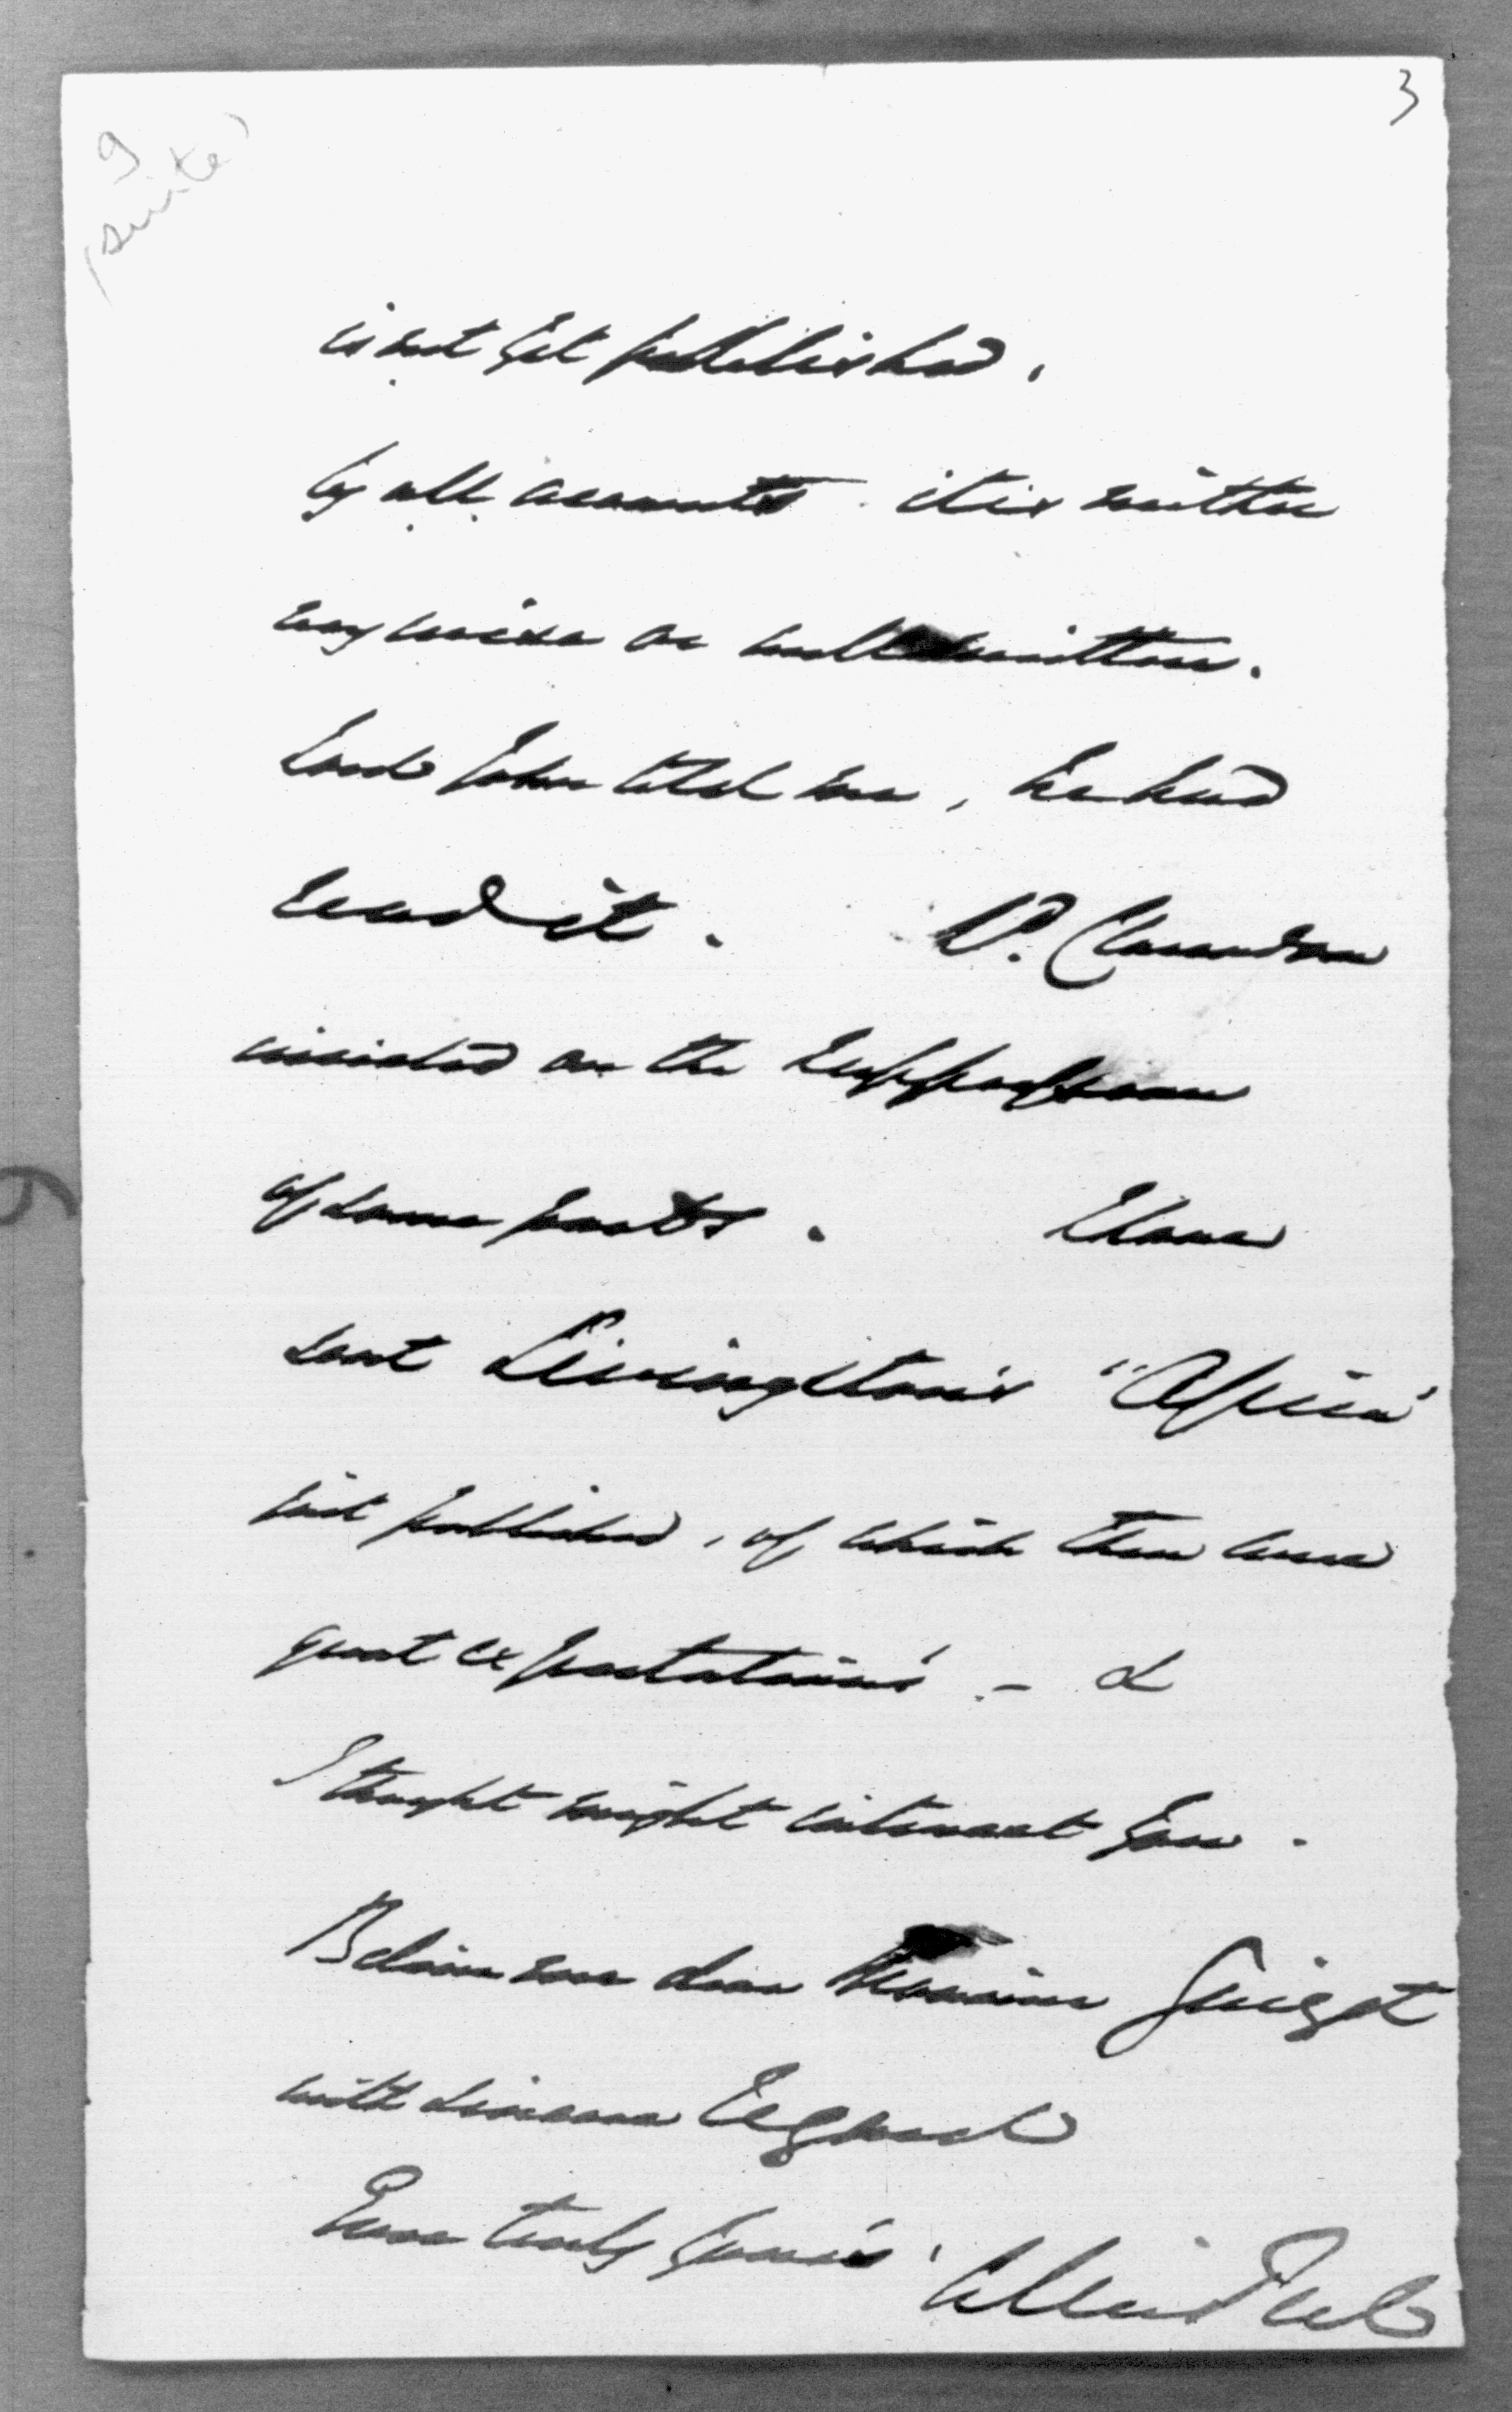 3
9
(suite)
is not yet published.
by all accounts it is neither
very wise or well written.
Lord John told me, he had
read it. Ld. Clarendon
insisted on the suppression
of some parts. I have
sent Livingston's "Africa"
just published, of which there were
great expectations - &
I thought might interest you.
Believe me dear Monsieur Guizot
with sincere regard
Ever truly yours,